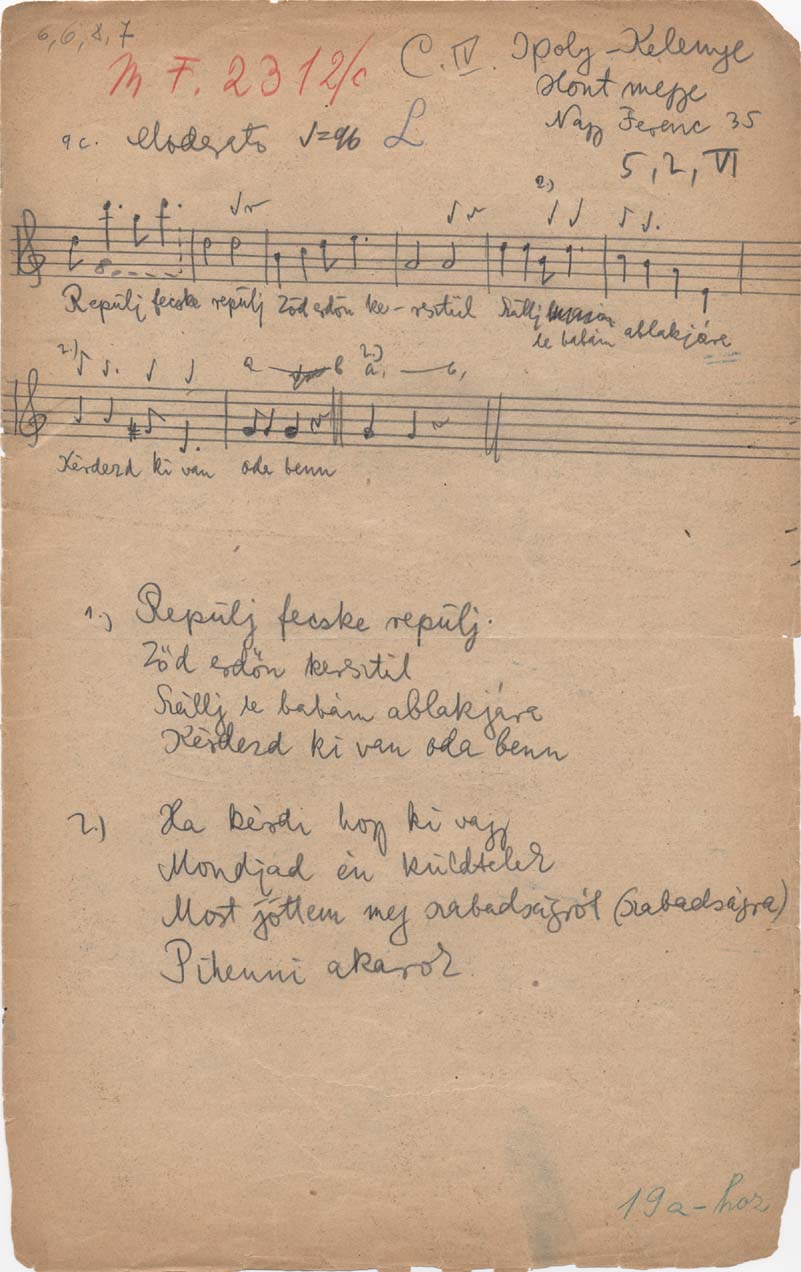 6,6,8,7
M F. 2312/c
C. IV. Ipoly-Kelenye
Hont megye
Nagy Ferenc 35
9c. Moderato ♩=96 L
5, 2, VI
2.)
Repülj fecske repülj Zöd erdőn ke-resztül Szállj
te babám ablakjára
2.) a b 2.) a, b,
Kérdezd ki van oda benn
1.) Repülj fecske repülj.
Zöd erdőn keresztil
Szállj te babám ablakjára
Kérdezd ki van oda benn
2.) Ha kérdi hogy ki vagy
Mondjad én küldtelek
Most jöttem meg szabadságról (szabadságra)
Pihenni akarok
19a-hoz